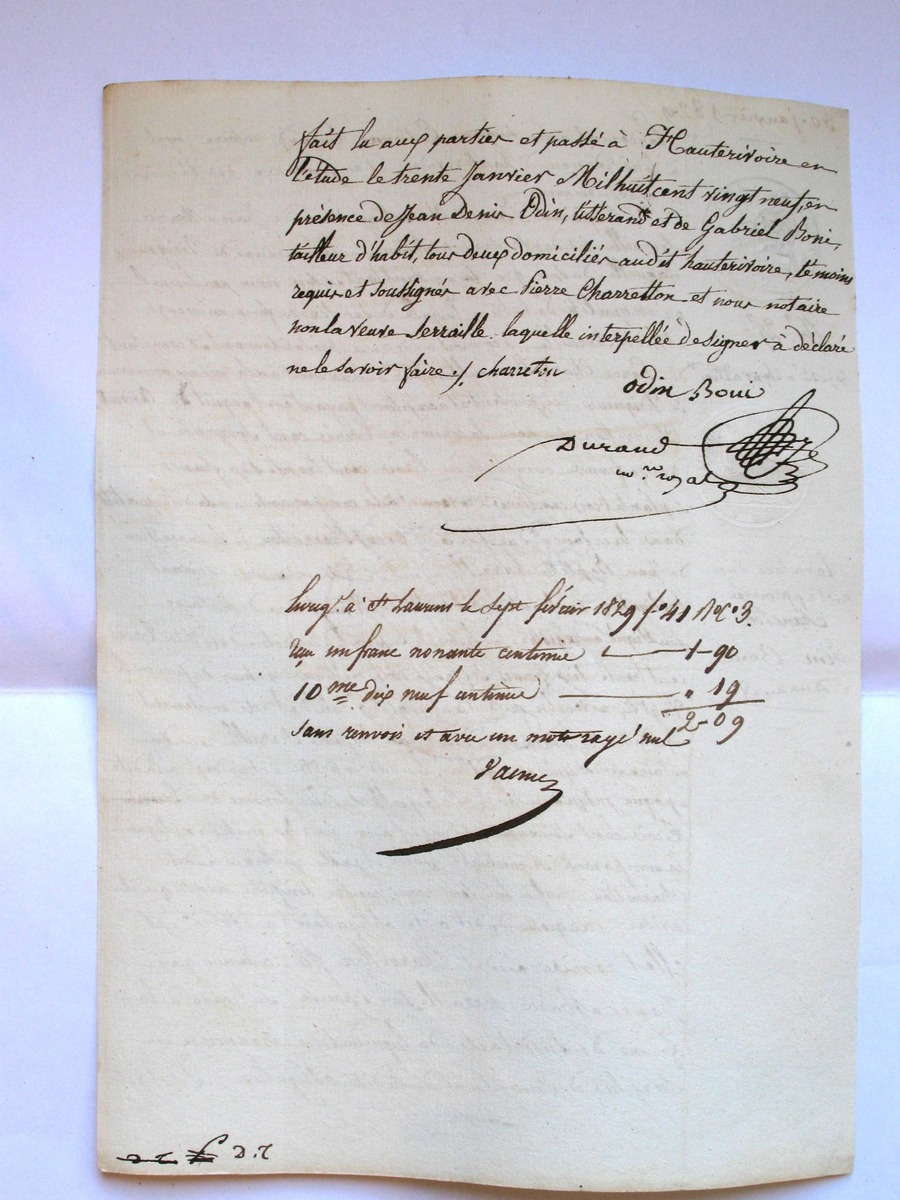 fait lu aux parties et passé à Hauterivoire en
l'étude le trente Janvier Milhuit cent vingt neuf, en
présence de Jean Denis Odin, tisserand et de Gabriel Boni,
tailleur d'habit, tous deux domiciliés audit hauterivoire, témoins
requis et soussignés avec Pierre Charretton et nous notaire
non la veuve Serraille laquelle interpellée de signer à déclaré
ne le savoir faire ./. charreton
odin Boni
Durand
no.re royal
Enreg.é à St Laurent le sept février 1829 fo 41 Ro Co 3.
reçu un franc nonante centime 1-90
10me dix neuf centime " 19
2-09
sans renvois et avec un mot rayé nul
D.T